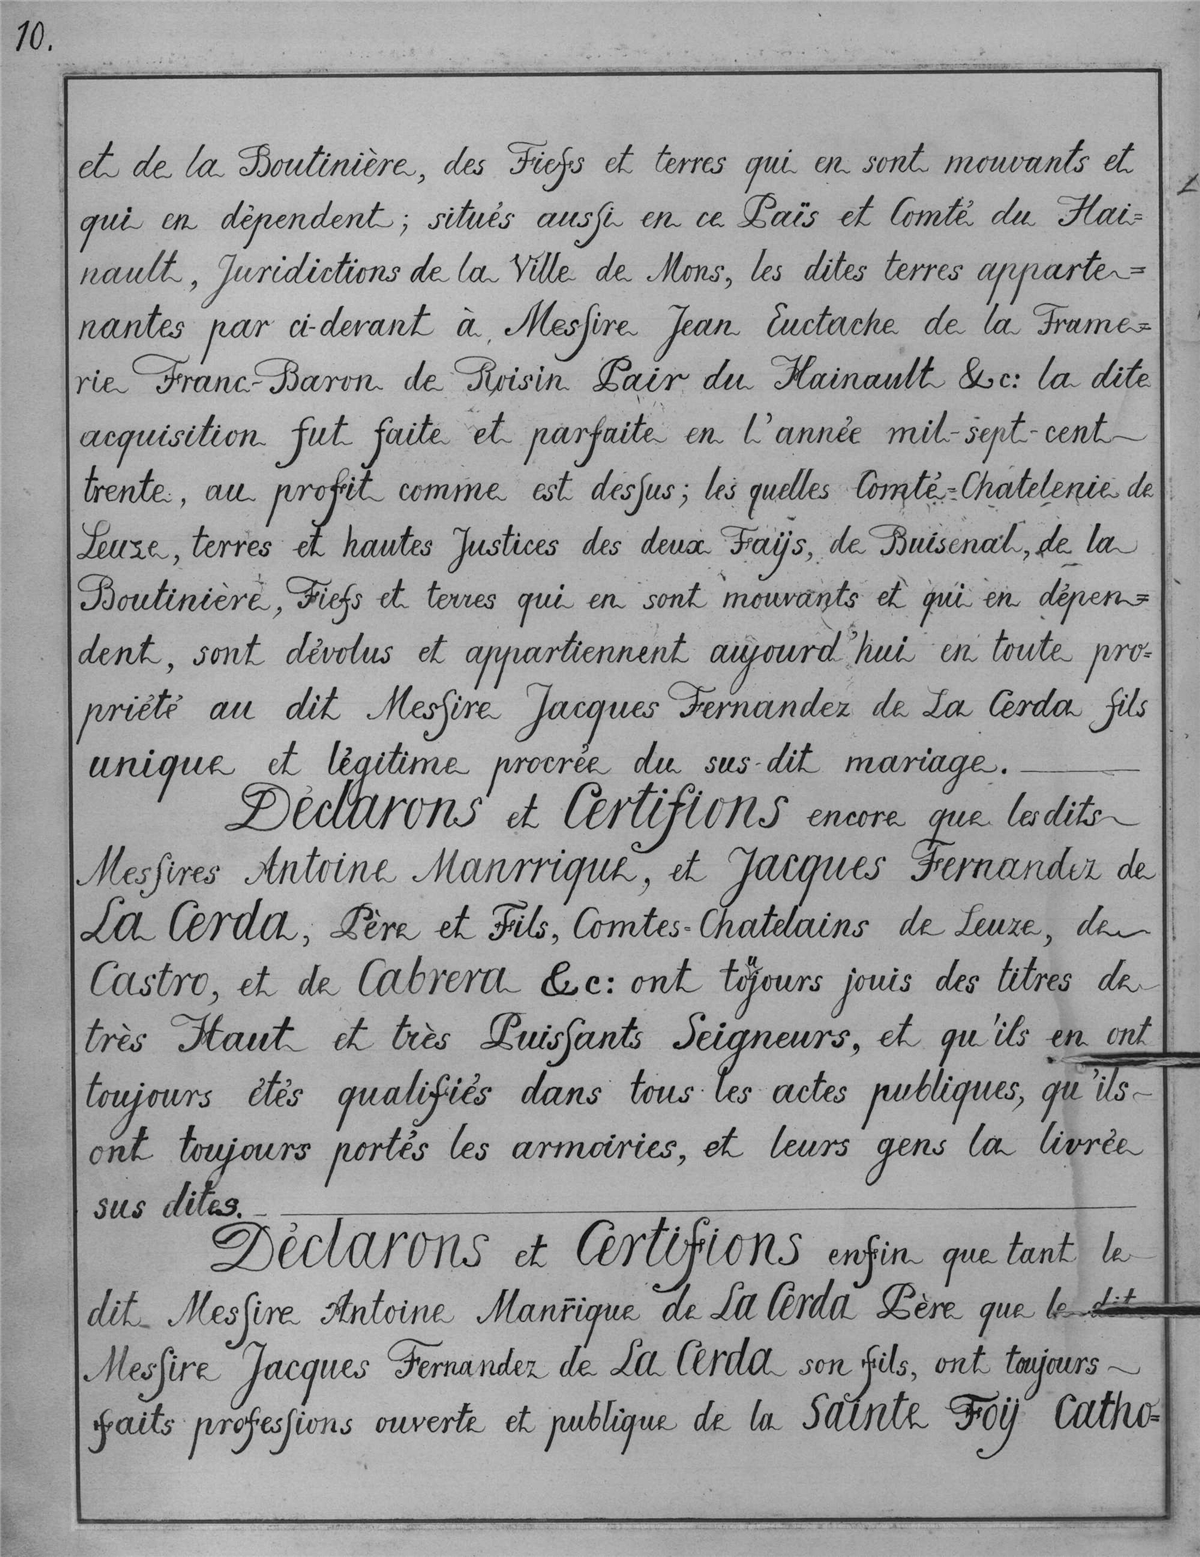 10.
et de la Boutinière, des Fiefs et terres qui en sont mouvants et
qui en dépendent; situés aussi en ce Païs et Comté du Hai=
nault, Juridictions de la Ville de Mons, les dites terres apparte=
nantes par ci-devant à Messire Jean Euctache de la Frame=
rie Franc-Baron de Roisin Pair du Hainault &c: la dite
acquisition fut faite et parfaite en l'année mil-sept-cent
trente, au profit comme est dessus; les quelles Comté=Chatelenie de
Leuze, terres et hautes Justices des deux Faÿs, de Buisenal, de la
Boutinière, Fiefs et terres qui en sont mouvants et qui en dépen=
dent, sont dévolus et appartiennent aujourd'hui en toute pro=
priété au dit Messire Jacques Fernandez de La Cerda fils
unique et légitime procrée du sus-dit mariage.
Déclarons et Certifions encore que lesdits
Messires Antoine Manrrique, et Jacques Fernandez de
La Cerda, Père et Fils, Comtes=Chatelains de Leuze, de
Castro, et de Cabrera &c: ont toüjours jouis des titres de
très Haut et très Puissants Seigneurs, et qu'ils en ont
toujours étés qualifiés dans tous les actes publiques, qu'ils
ont toujours portés les armoiries, et leurs gens la livrée
sus dites.
Déclarons et Certifions enfin que tant le
dit Messire Antoine Manr̃ique de La Cerda Père que le dit
Messire Jacques Fernandez de La Cerda son fils, ont toujours
faits professions ouverte et publique de la Sainte Foÿ Catho=